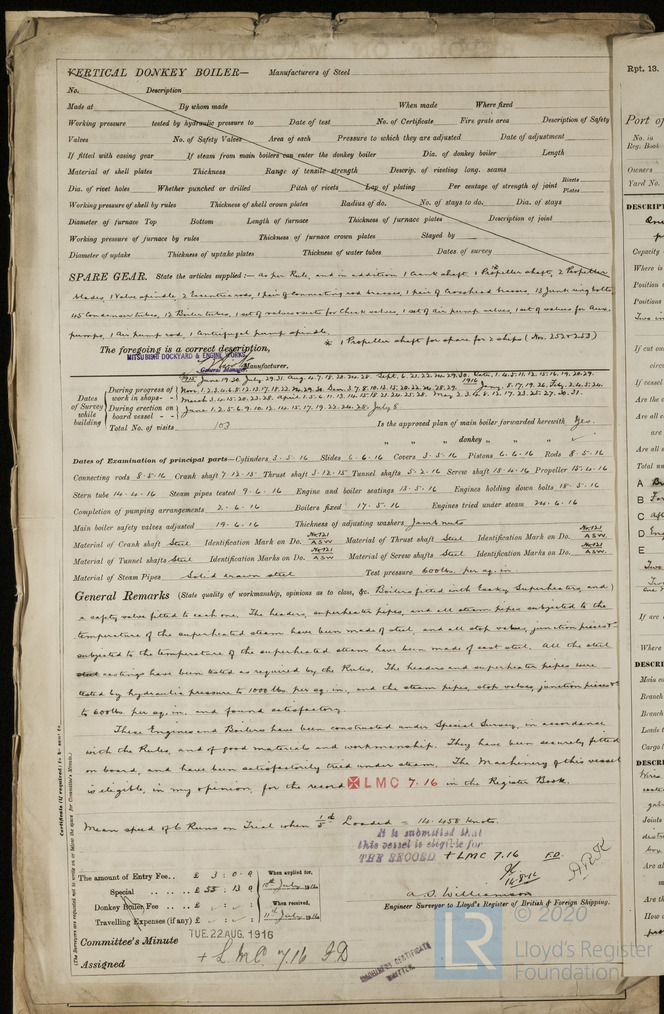 VERTICAL DONKEY BOILER— Manufacturers of Steel
No. Description
Made at By whom made When made Where fixed
Working pressure tested by hydraulic pressure to Date of test No. of Certificate Fire grate area Description of Safety
Valves No. of Safety Valves Area of each Pressure to which they are adjusted Date of adjustment
If fitted with easing gear If steam from main boilers can enter the donkey boiler Dia. of donkey boiler Length
Material of shell plates Thickness Range of tensile strength Descrip. of riveting long. seams
Dia. of rivet holes Whether punched or drilled Pitch of rivets Lap of plating Per centage of strength of joint Rivets Plates
Working pressure of shell by rules Thickness of shell crown plates Radius of do. No. of stays to do. Dia. of stays
Diameter of furnace Top Bottom Length of furnace Thickness of furnace plates Description of joint
Working pressure of furnace by rules Thickness of furnace crown plates Stayed by
Diameter of uptake Thickness of uptake plates Thickness of water tubes Dates of survey
SPARE GEAR. State the articles supplied :— As per Rule, and in addition 1 Crank shaft 1 Propeller shaft, 2 Propeller
blades, 1 Valve spindle, 2 Eccentric rods, 1 pair of Connecting rod brasses, 1 pair of Crosshead brasses, 13 Junk ring bolts
45 Condenser tubes, 12 Boiler tubes, 1 set of valves & seats for Check valves, 1 set of air pump valves, 1 set of valves for Aux.
pumps, 1 Air pump rod, 1 Antifugal pump spindle.
* 1 Propeller shaft for spare for 2 ships (Nos. 252 & 253)
The foregoing is a correct description,
MITSUBISHI DOCKYARD & ENGINE WORKS,
General Manager. Manufacturer.
Dates of Survey while building
During progress of work in shops - -
During erection on board vessel - -
Total No. of visits 103
Is the approved plan of main boiler forwarded herewith Yes.
" " " donkey " " "
Dates of Examination of principal parts—Cylinders 3.5.16 Slides 6.6.16 Covers 3.5.16 Pistons 6.6.16 Rods 8.5.16
Connecting rods 8.5.16 Crank shaft 7.12.15 Thrust shaft 3.12.15 Tunnel shafts 5.2.16 Screw shaft 18.4.16 Propeller 15.4.16
Stern tube 14.4.16 Steam pipes tested 9.6.16 Engine and boiler seatings 13.5.16 Engines holding down bolts 18.5.16
Completion of pumping arrangements 2.6.16 Boilers fixed 17.5.16 Engines tried under steam 24.6.16
Main boiler safety valves adjusted 19.6.16 Thickness of adjusting washers Jamb nuts
Material of Crank shaft Steel Identification Mark on Do. No 121 A.S.W. Material of Thrust shaft Steel Identification Mark on Do. No 121 A.S.W.
Material of Tunnel shafts Steel Identification Marks on Do. No 121 A.S.W. Material of Screw shafts Steel Identification Marks on Do. No 121 A.S.W.
Material of Steam Pipes Solid drawn steel Test pressure 600 lbs. per sq. in.
General Remarks (State quality of workmanship, opinions as to class, &c. Boilers fitted with Easky Superheaters, and)
a safety valve fitted to each one. The headers, superheater pipes, and all steam pipes subjected to the
temperature of the superheated steam have been made of steel, and all stop valves, junction pieces &c
subjected to the temperature of the superheated steam have been made of cast steel. All the steel
castings have been tested as required by the Rules. The headers and superheater pipes were
tested by hydraulic pressure to 1000 lbs. per sq. in., and the steam pipes, stop valves, junction pieces &c
to 600 lbs. per sq. in. and found satisfactory.
These Engines and Boilers have been constructed under Special Survey, in accordance
with the Rules, and of good materials and workmanship. They have been securely fitted
on board, and have been satisfactorily tried under steam. The Machinery of this vessel
is eligible, in my opinion, for the record LMC 7.16 in the Register Book.
Mean speed of 6 Runs on Trial when Loaded = 14.458 knots.
It is submitted that
this vessel is eligible for
THE RECORD + LMC 7.16 F.D.
16.8.16
The amount of Entry Fee .. £ 3 : 0 : 0
When applied for, 10th July 1916
Special .. £ 55 : 13 :
Donkey Boiler Fee .. £
When received, 11th July 1916
Travelling Expenses (if any) £
A. S. Williamson
Engineer Surveyor to Lloyd's Register of British & Foreign Shipping.
Committee's Minute TUE. 22 AUG. 1916
Assigned + LMC 7.16 F.D.
MACHINERY CERTIFICATE
WRITTEN.
(The Surveyors are requested not to write on or below the space for Committee's Minute.)
© 2020
LR Lloyd's Register
Foundation
Rpt. 13.
Port of
No. in
Reg. Book
Owners
Yard No.
DESCRIPT
Capacity
Where is
Position
Positions
If cut
If vessel
Are the
Are all
Are all
Total nu
A
B
C
D
E
If are
Where
DESCRI
Main
Branch
Branch
Leads
Cargo
DESCRI
Joints
Are al
Are th
How